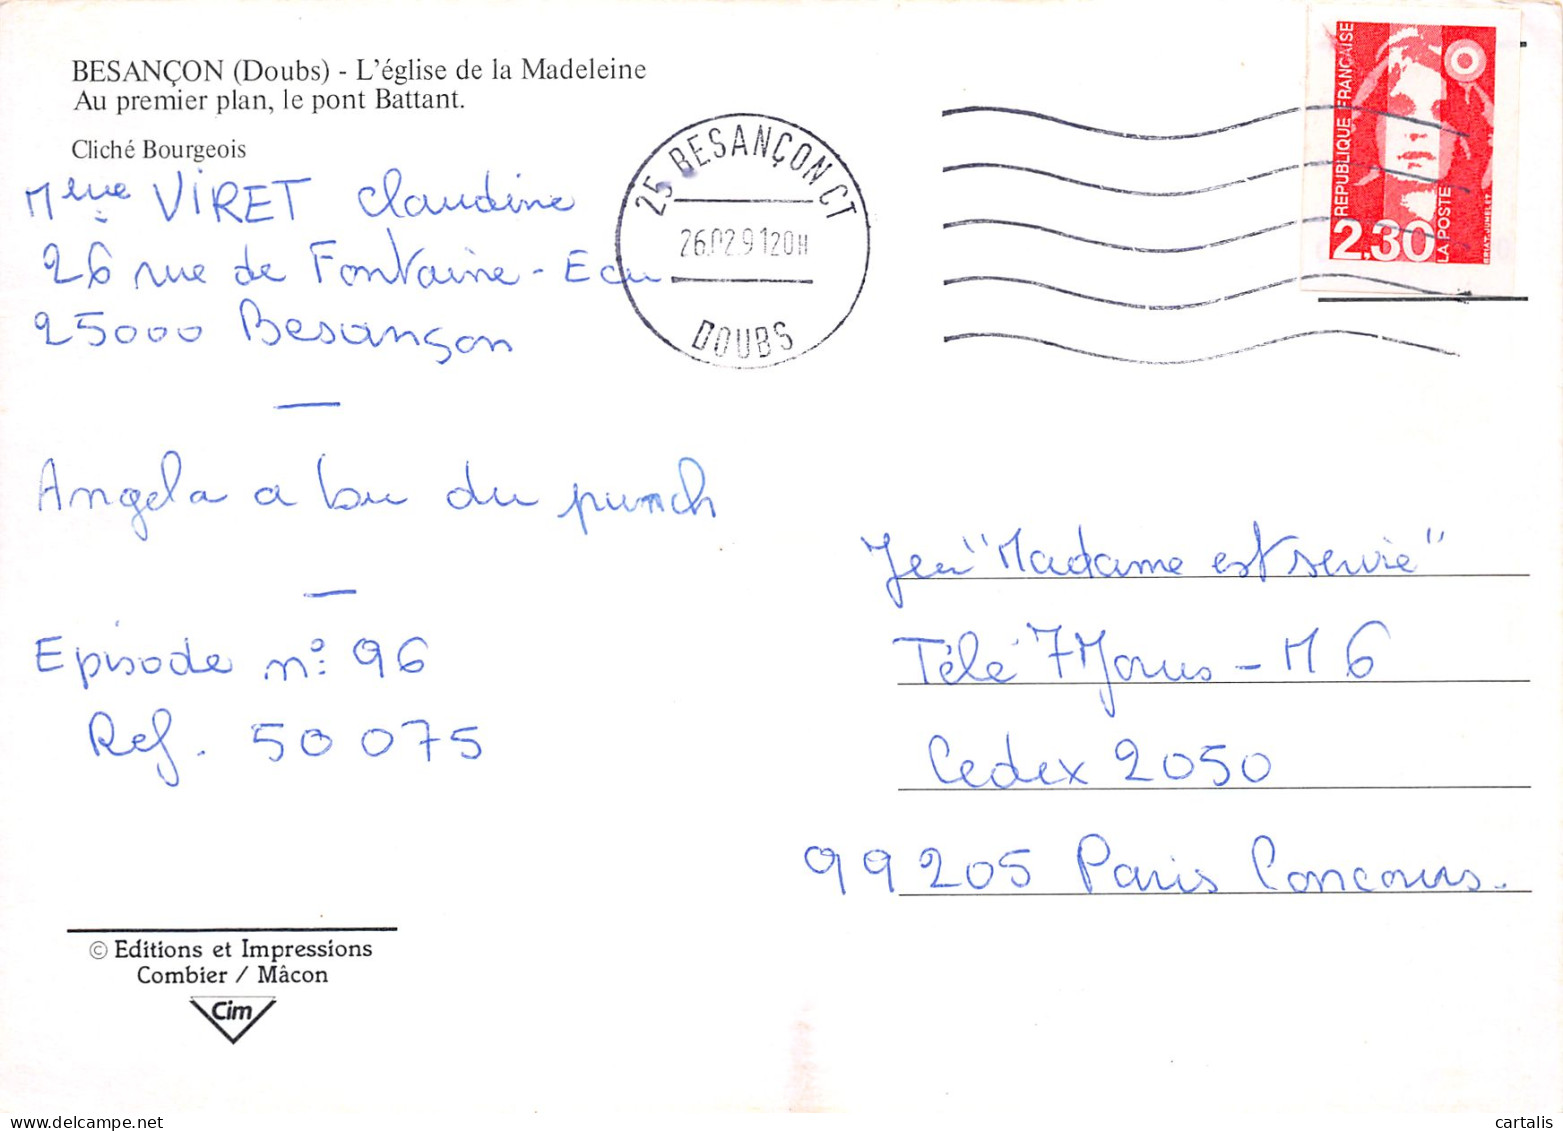 BESANÇON (Doubs) - L'église de la Madeleine
Au premier plan, le pont Battant.
Cliché Bourgeois
Melle VIRET Claudine
26 rue de Fontaine - Ecu
25000 Besançon
Angela a bu du punch
Episode n° 96
Ref. 50 075
© Editions et Impressions
Combier / Mâcon
Cim
25 BESANÇON CT
26.02.91 20H
DOUBS
REPUBLIQUE FRANÇAISE
2,30
LA POSTE
BRIAT.JUMELET
Jeu "Madame est servie"
Télé 7 Jours - M 6
Cedex 2050
99205 Paris Concours.
cartalis